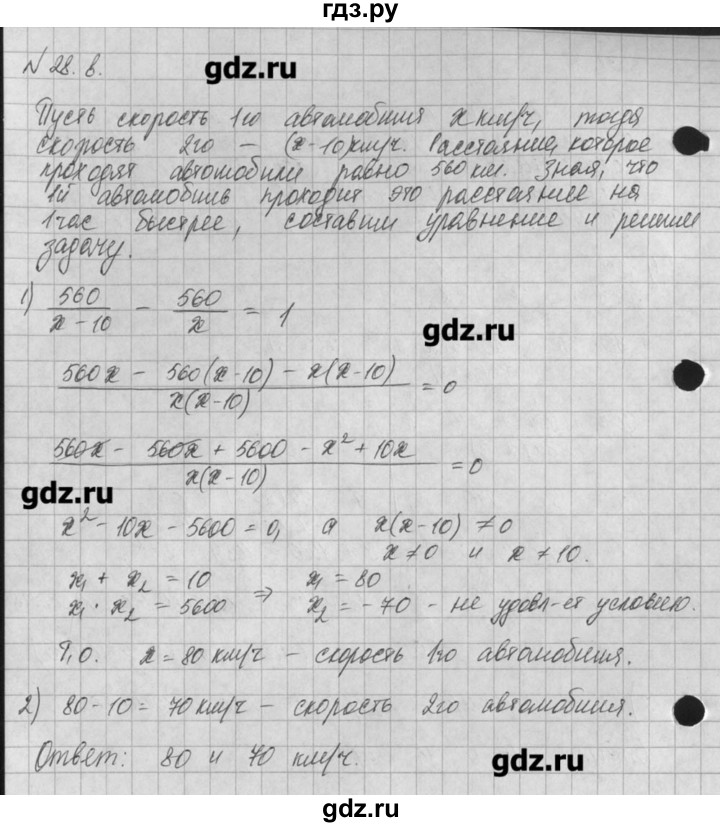 гдз.ру
N 28. в.
gdz.ru
Пусть скорость 1го автомобиля x км/ч, тогда
скорость 2го – (x-10)км/ч. Расстояние, которое
проходят автомобили равно 560 км. Зная, что
1й автомобиль проходит это расстояние на
1час быстрее, составим уравнение и решим
задачу.
1) 560/(x-10) - 560/x = 1
gdz.ru
(560x - 560(x-10) - x(x-10))/(x(x-10)) = 0
(560x - 560x + 5600 - x² + 10x)/(x(x-10)) = 0
gdz.ru
x² - 10x - 5600 = 0, а x(x-10) ≠ 0
x ≠ 0 и x ≠ 10.
x₁ + x₂ = 10 ⇒ x₁ = 80
x₁ · x₂ = 5600 x₂ = -70 - не удовл-ет условию.
Т,о. x = 80 км/ч – скорость 1го автомобиля.
2) 80-10 = 70 км/ч – скорость 2го автомобиля.
Ответ: 80 и 70 км/ч.
gdz.ru
gdz.ru